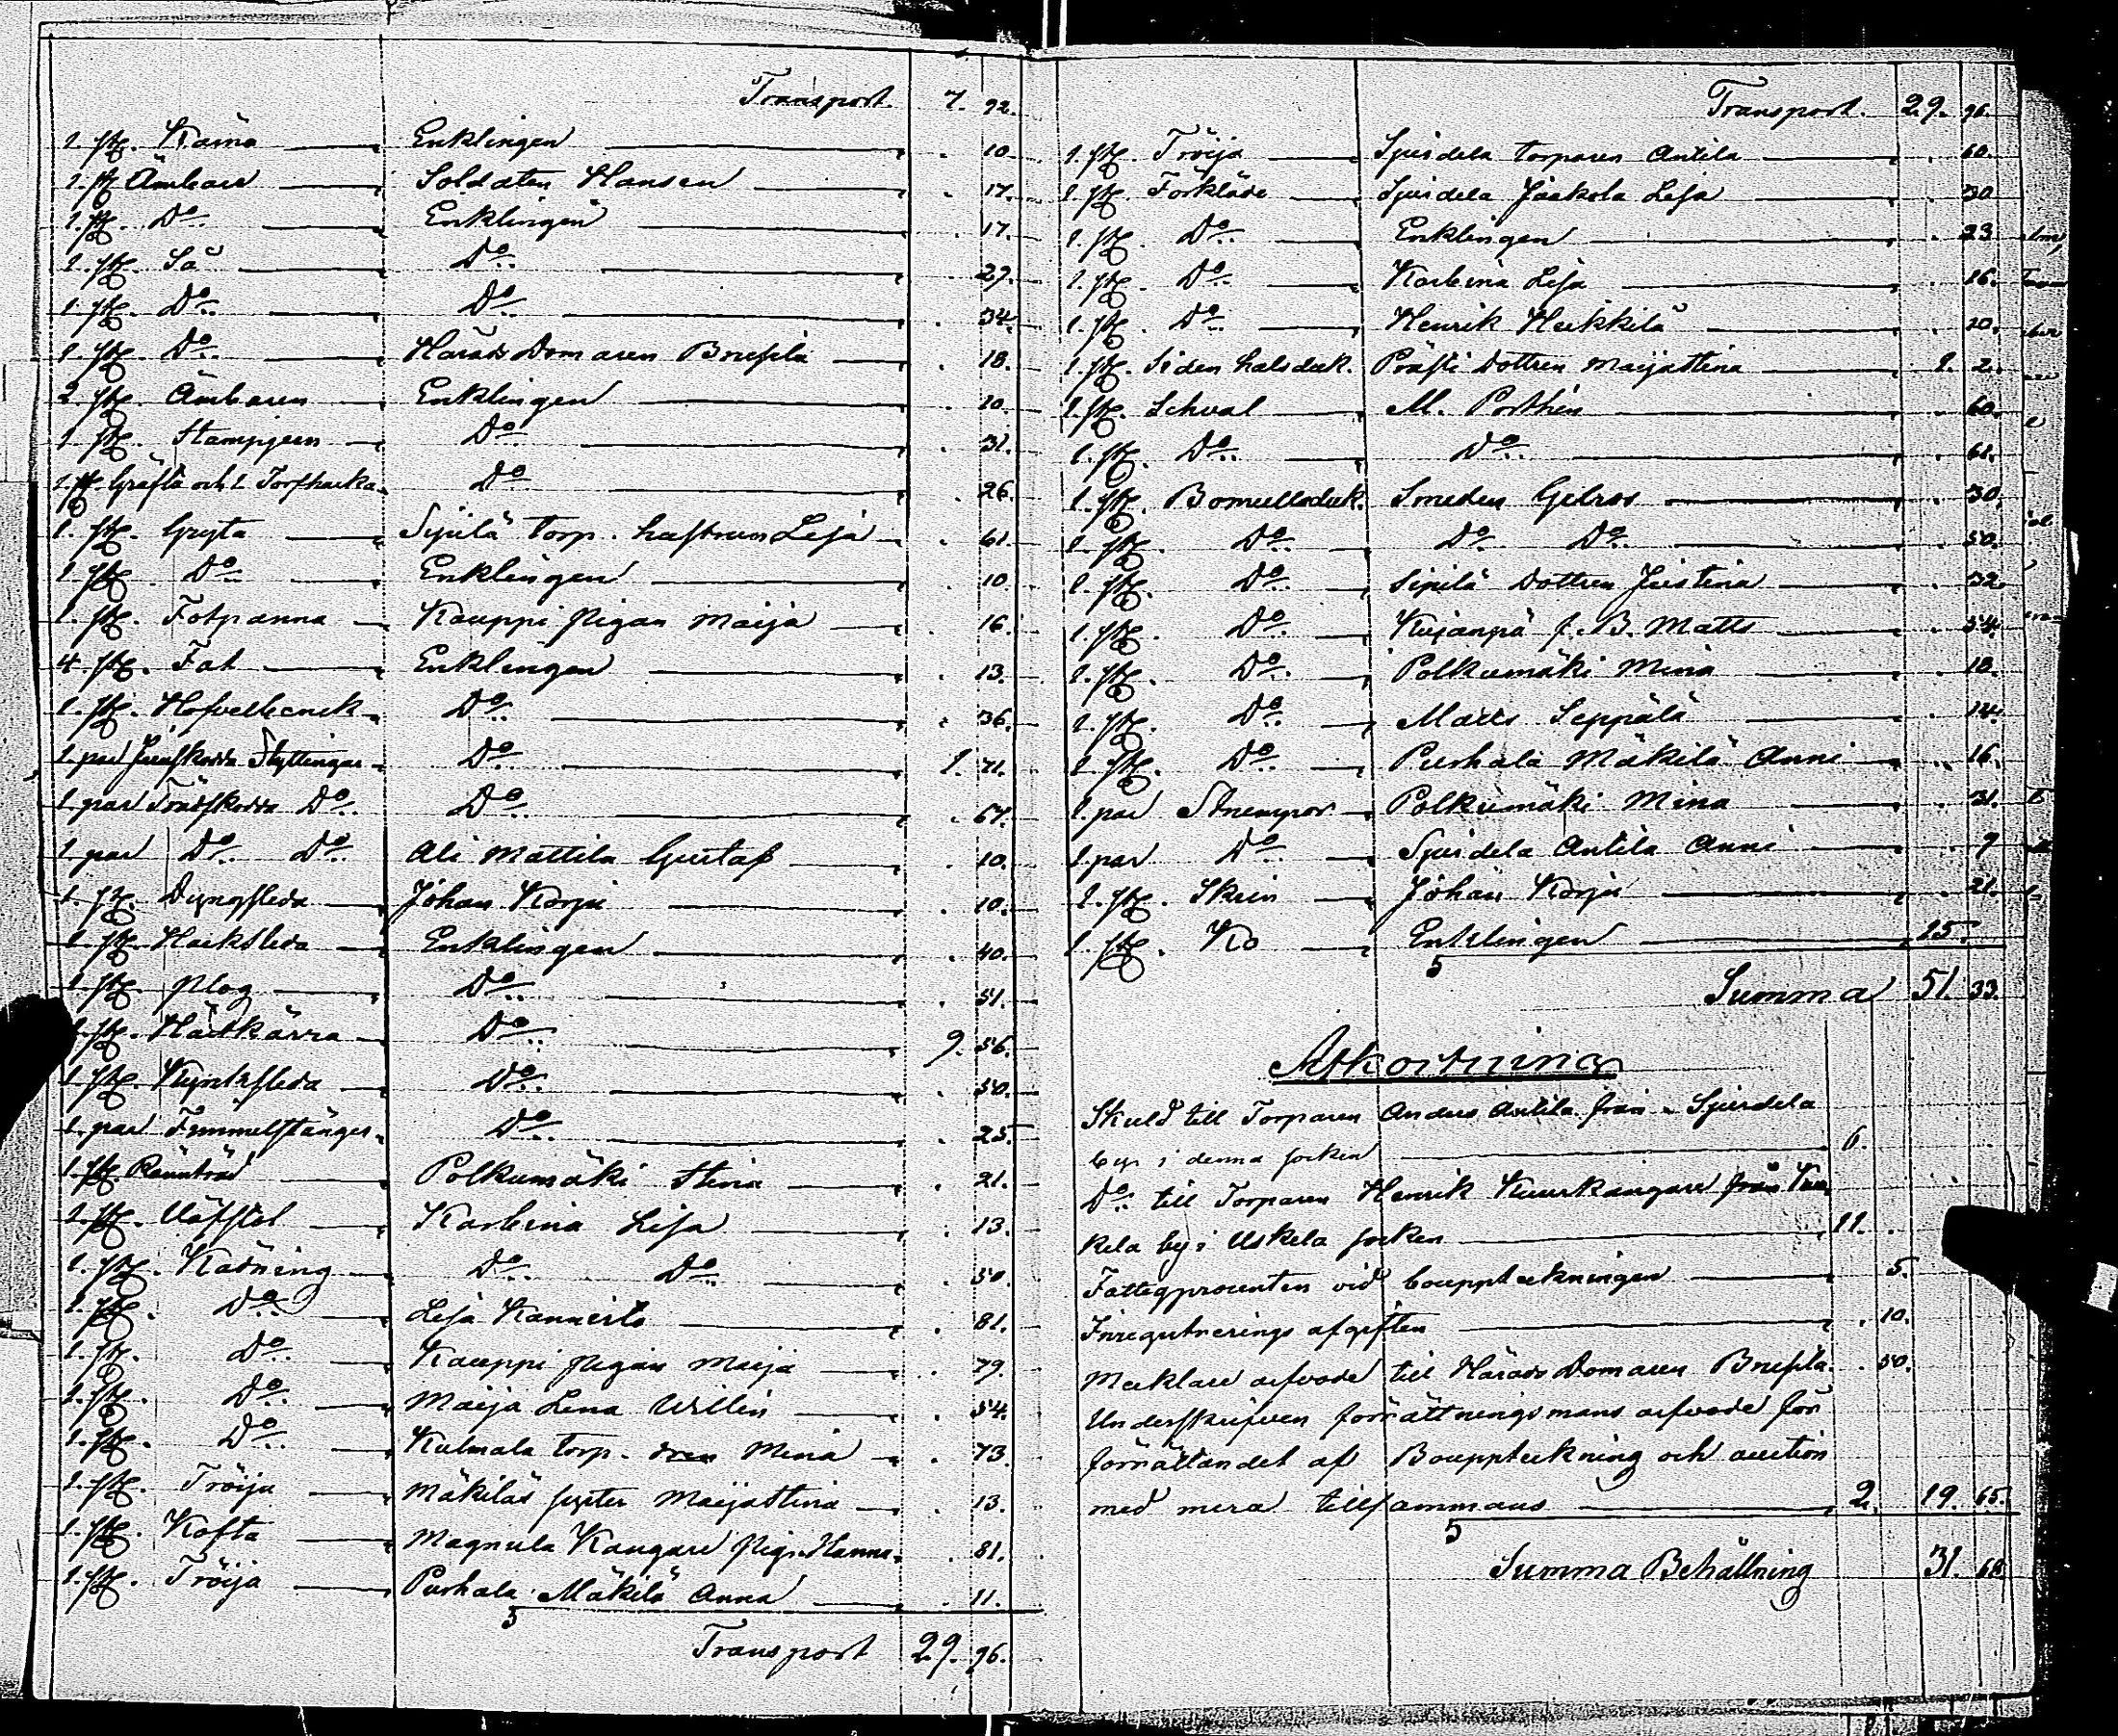 Transport 7. 92.
1. st. Kärna Enklingen . 10.
1. st. Ämbare Soldaten Hansen . 17.
1. st. Do Enklingen . 17.
1. st. Så Do . 27.
1. st. Do Do . 34.
1. st. Do Härads Domaren Brusila . 18.
2. st. Ämbaren Enklingen . 20.
1. st. Do . 31.
1. st. Gräfta och 1 Torfhacka Do . 26.
1. st. Gryta Sipilä torp. hustrun Lisa . 61.
1. st. Do Enklingen . 10.
1. st. Fotpanna Kauppi Pigan Maija . 16.
4. st. Fat Enklingen . 13.
1. st. Hofvelbänck Do . 36.
1. par Jernskodda Flyttingar Do 1. 71.
1. par Trädskodda Do Do . 67.
1. par Do Do Ali Mattila Gustaf . 10.
1. st. Dyngsleda Johan Korpi . 10.
1. st. Hacksleda Enklingen . 40.
1. st. Plog Do . 51.
1. st. Hästkärra Do 9. 56.
1. st. Do . 50.
1. par Femmelstänger Do . 25.
1. st. Polkumäki Stina . 21.
1. st. Väfstol Karlina Lisa . 13.
1. st. Klädning Do Do . 50.
1. st. Do Lisa Kannisto . 81.
1. st. Do Kauppi Pigan Maija . 79.
1. st. Do Maija Lena Willin . 54.
1. st. Do Kulmala torp. dren Mina . 73.
1. st. Tröija Mäkiläs syster Maijastina . 13.
1. st. Kofta Magnula Kangare Pig. Hanna . 81.
1. st. Tröija Purhala Mäkilä Anna . 11.
Transport 29. 96.
Transport. 29. 96.
1. st. Tröija Sjurdela torparen Antila . 60.
1. st. Förkläde Sjurdela Jaakola Lisa . 30
1. st. Do Enklingen . 23
1. st. Do Karlina Lisa . 16.
1. st. Do Henrik Heikkilä . 20.
1. st. Siden halsduk. Prästi dottren Maijastina 1. 2.
1. st. Schval M. Porthén . 60.
1. st. Do Do . 61.
1. st. Bomullsduk. Smeden Gilros . 30.
1. st. Do Do Do . 50.
1. st. Do Sipilä dottren Justina . 32.
1. st. Do Kujanpä f. B. Matts . 54.
1. st. Do Polkumäki Mina . 18.
1. st. Do Matts Seppälä . 14.
1. st. Do Purhala Mäkilä Anni . 16.
1. par Strumpor Polkumäki Mina . 31.
1. par Do Sjurdela Antila Anni . 9
1. st. Skrin Johan Korpi . 21.
1. st. Ko Enklingen 15.
Summa 51. 33.
Afkortning
Skuld till Torparen Anders Antila från Sjurdela
by i denna socken 6.
Do till Torparen Henrik Kuurkangare från
kela by i Uskela socken 11.
Fattigprocenten vid bouppteckningen . 5.
Inregistrerings afgiften . 10.
Mecklare arfvode till Härads Domaren Brusila . 50.
Underskrifven förrättningsmans arfvode för
förrättandet af Bouppteckning och auction
med mera tillsammans 2. 19. 65.
Summa Behållning 31. 68